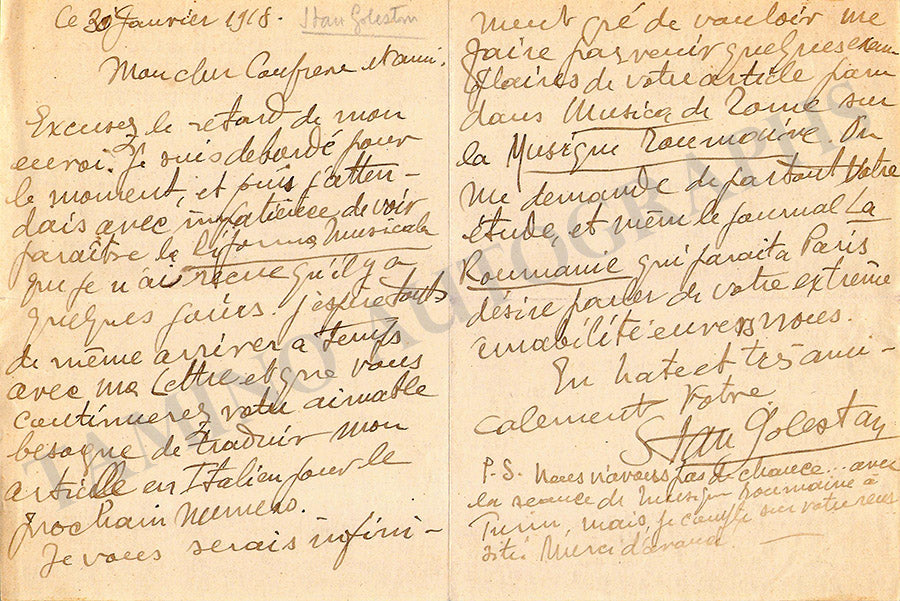 Ce 30 Janvier 1918.
Stan Golestan
Mon cher Confrère et ami.
Excusez le retard de mon
envoi. Je suis debordé pour
le moment, et puis j'atten-
dais avec impatience de voir
paraître la Riforma Musicale
que je n'ai reçue qu'il y a
quelques jours. J'espère tout
de même arriver à temps
avec ma lettre et que vous
continuerez votre aimable
besogne de traduire mon
article en Italien pour le
prochain numero.
Je vous serais infini-
ment gré de vouloir me
faire parvenir quelques exem
plaires de votre article paru
dans Musica, de Rome sur
la Musique Roumaine. On
me demande de partout votre
étude, et même le journal La
Roumanie qui parait a Paris
désire parler de votre extrême
amabilité envers nous.
En hate et très ami-
calement Votre
Stan Golestan
P.S. Nous n'avons pas de chance... avec
la seance de musique Roumaine à
Turin, mais, je compte sur votre
Merci d'avance.
TAMINO AUTOGRAPHS